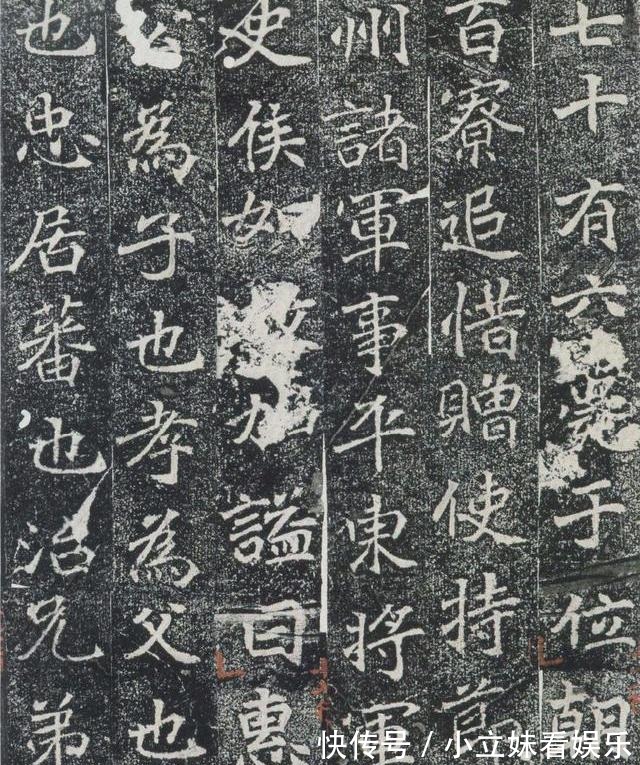 七十有六薨于位朝
百寮追惜贈使持節
州諸軍事平東將軍
史侯如故加謚曰惠
公為子也孝為父也
也忠居蕃也治兄弟
快传号 / 小立妹看娱乐